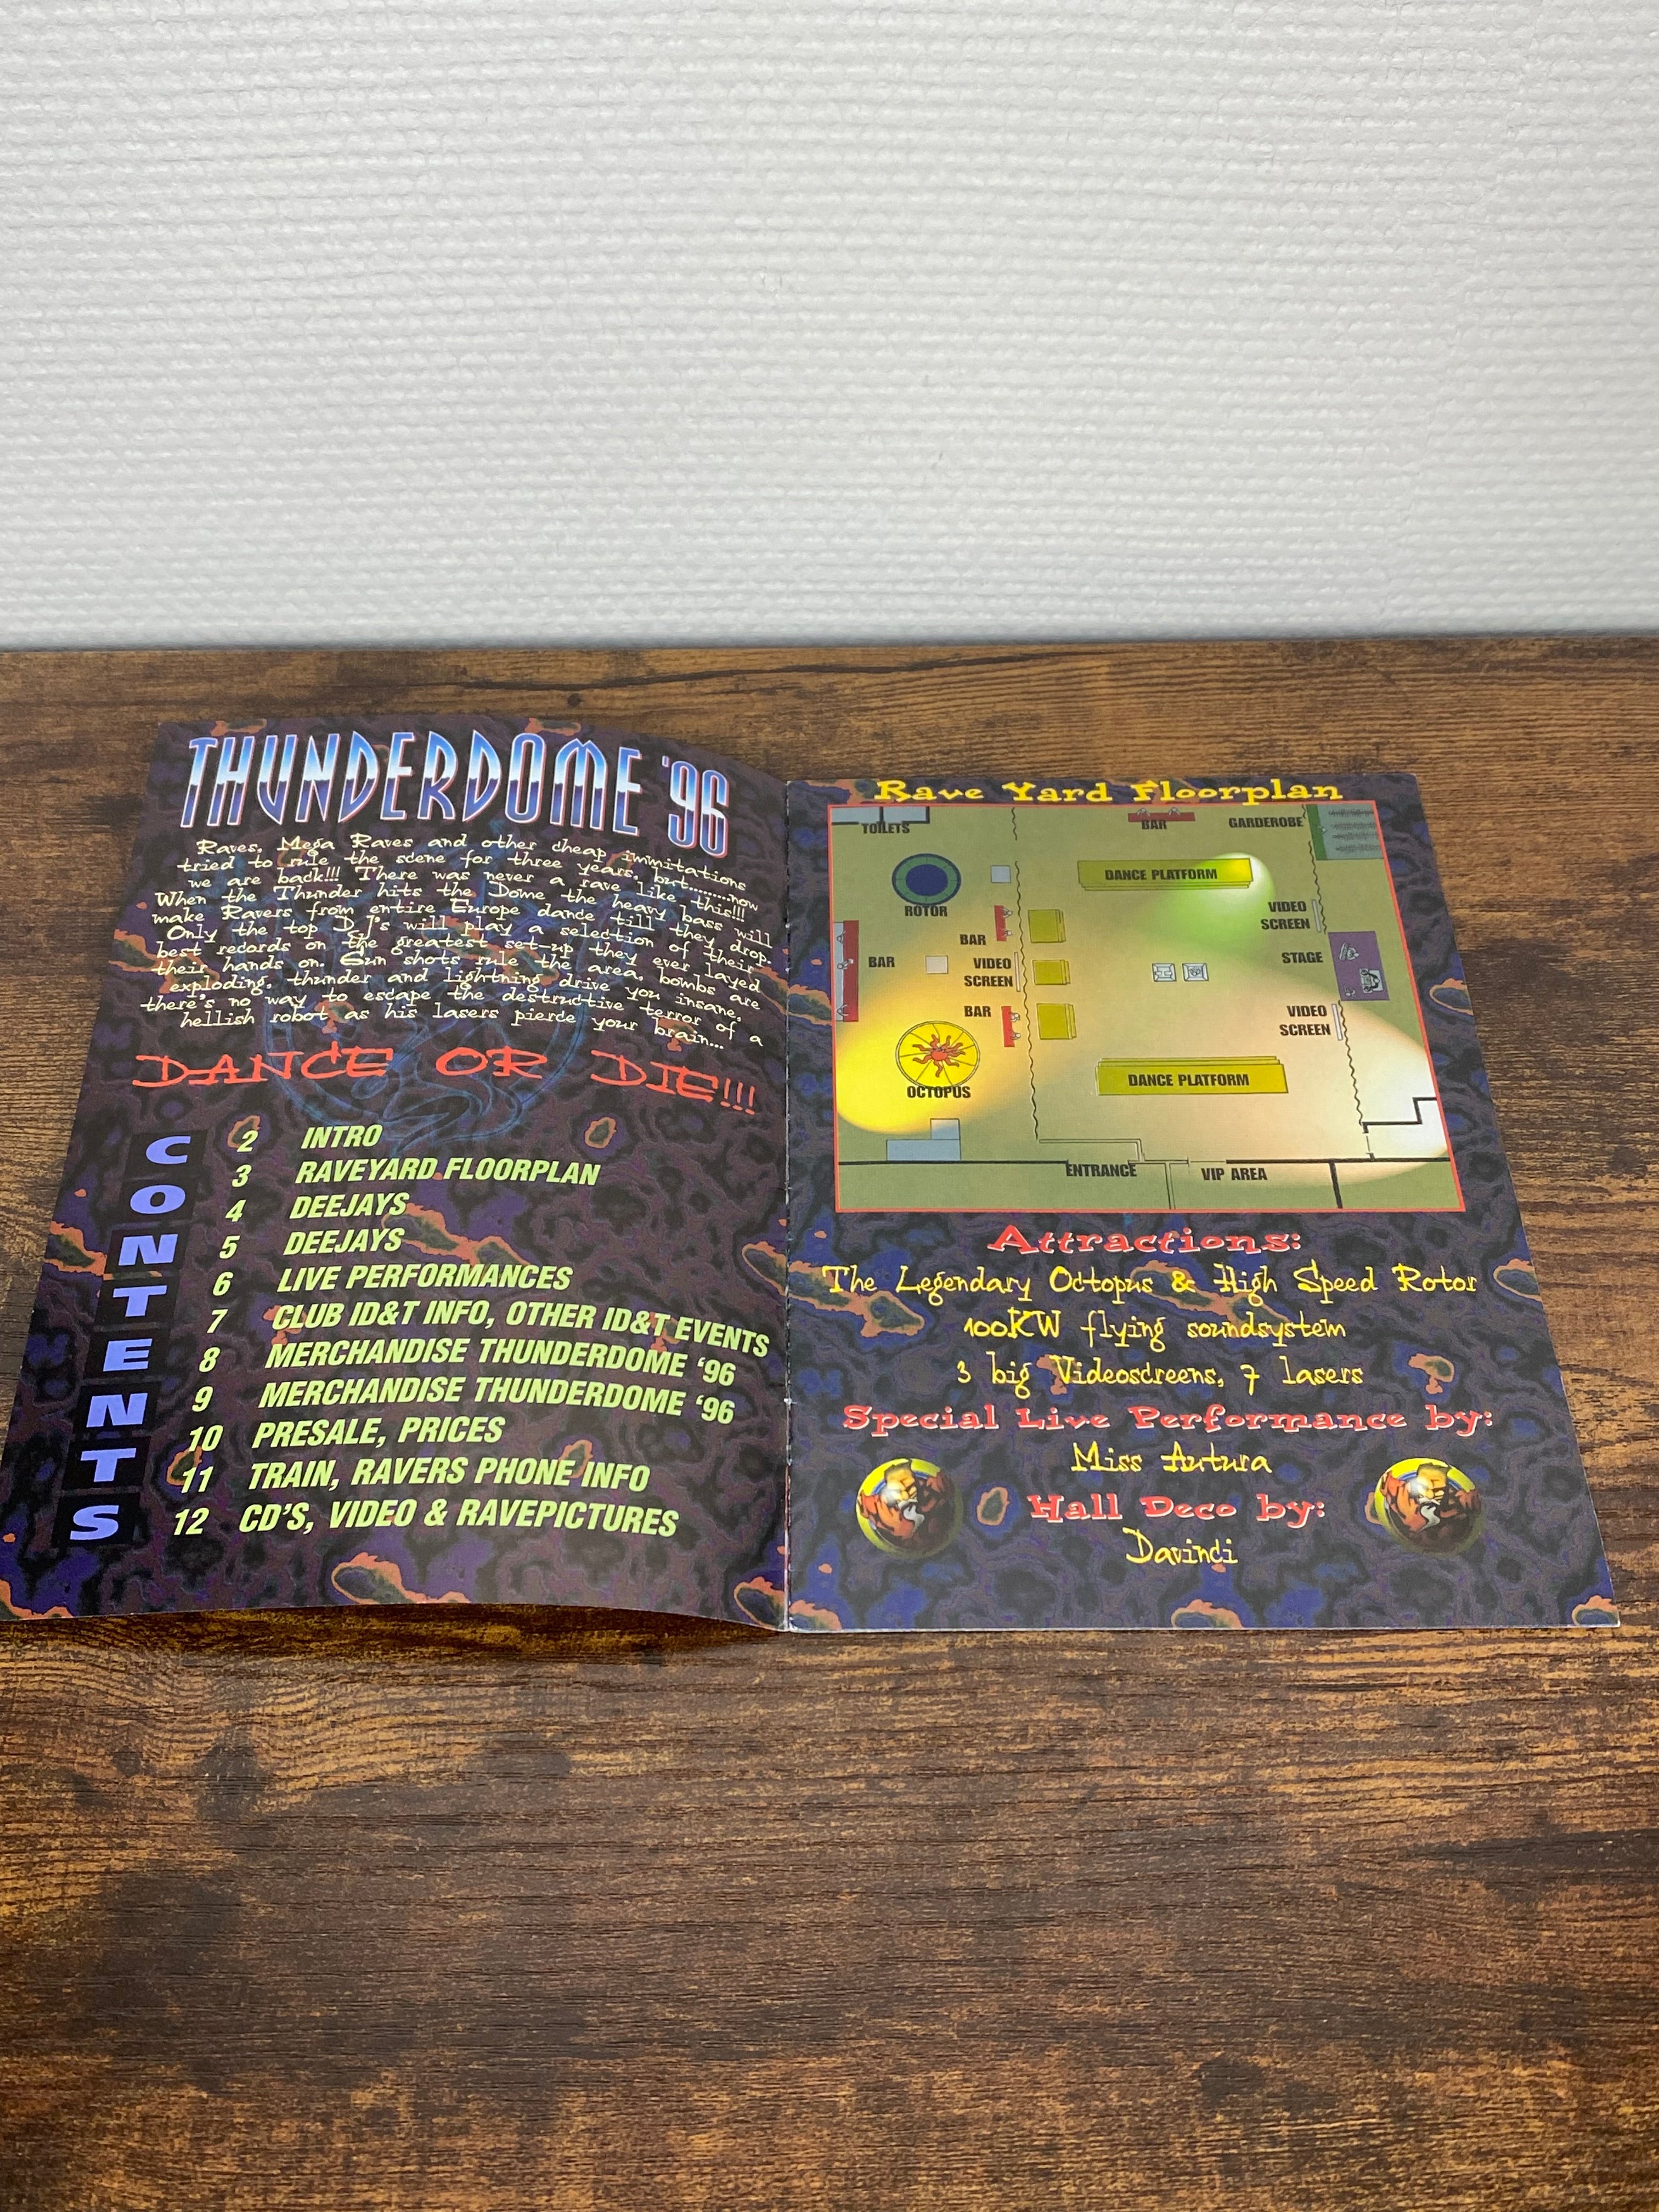 THUNDERDOME '96
Raves, Mega Raves and other cheap immitations
tried to rule the scene for three years, but........now
we are back!!! There was never a rave like this!!!
When the Thunder hits the Dome the heavy bass will
make Ravers from entire Europe dance till they drop.
Only the top DJ's will play a selection of their
best records on the greatest set-up they ever layed
their hands on. Gun shots rule the area, bombs are
exploding, thunder and lightning drive you insane,
there's no way to escape the destructive terror of a
hellish robot as his lasers pierce your brain...
DANCE OR DIE!!!
CONTENTS
2 INTRO
3 RAVEYARD FLOORPLAN
4 DEEJAYS
5 DEEJAYS
6 LIVE PERFORMANCES
7 CLUB ID&T INFO, OTHER ID&T EVENTS
8 MERCHANDISE THUNDERDOME '96
9 MERCHANDISE THUNDERDOME '96
10 PRESALE, PRICES
11 TRAIN, RAVERS PHONE INFO
12 CD'S, VIDEO & RAVEPICTURES
Rave Yard Floorplan
TOILETS
BAR
GARDEROBE
DANCE PLATFORM
ROTOR
VIDEO
SCREEN
BAR
BAR
VIDEO
SCREEN
STAGE
BAR
VIDEO
SCREEN
OCTOPUS
DANCE PLATFORM
ENTRANCE
VIP AREA
Attractions:
The Legendary Octopus & High Speed Rotor
100KW flying soundsystem
3 big Videoscreens, 7 lasers
Special Live Performance by:
Miss Autura
Hall Deco by:
Davinci